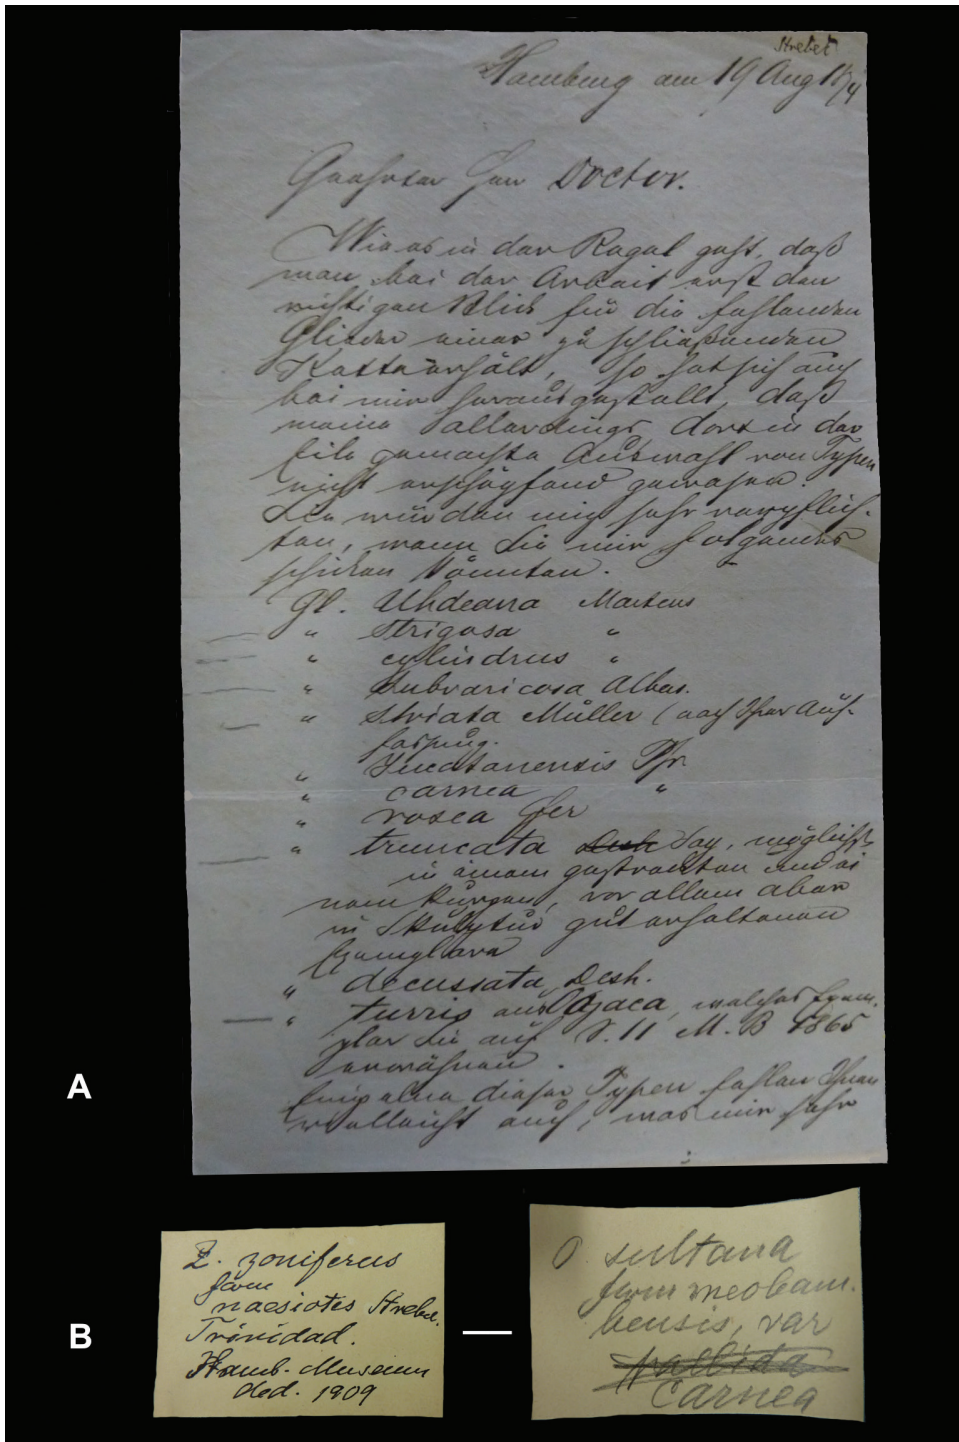 Strebel
Hamburg am 19 Aug 1874
Geehrter Herr Doctor.
Wie es in der Regel geht, daß
man bei der Arbeit erst den
richtigen Blick für die fehlenden
Glieder einer zu schließenden
Kette erhält, so hat sich auch
bei mir herausgestellt, daß
meine allerdings dort in der
Eile gemachte Auswahl von Typen
nicht erschöpfend gewesen.
Sie würden mich sehr verpflich-
ten, wenn Sie mir folgendes
schicken könnten.
Gl. Uhdeana Martens
" Strigosa "
" cylindrus "
" Subvaricosa Albers.
" Striata Müller (nach Ihrer Auf-
fassung.
" Yucatanensis Pfr
" carnea "
" rosea Fer
" truncata Say, möglichst
in einem gestreckten und ei
nem kurzen, vor allem aber
in Skulptur gut erhaltenen
Exemplare
" decussata Desh.
" turris aus Oajaca, welches Exem-
plar Sie auf S. 11 M. B 1865
erwähnen.
Einzelne dieser Typen fehlen Ihnen
vielleicht auch, was mir sehr
A
B
Z. zoniferus
form
naesiotes Strebel.
Trinidad.
Hamb. Museum
ded. 1909
O sultana
form meobam-
bensis, var
pallida
carnea